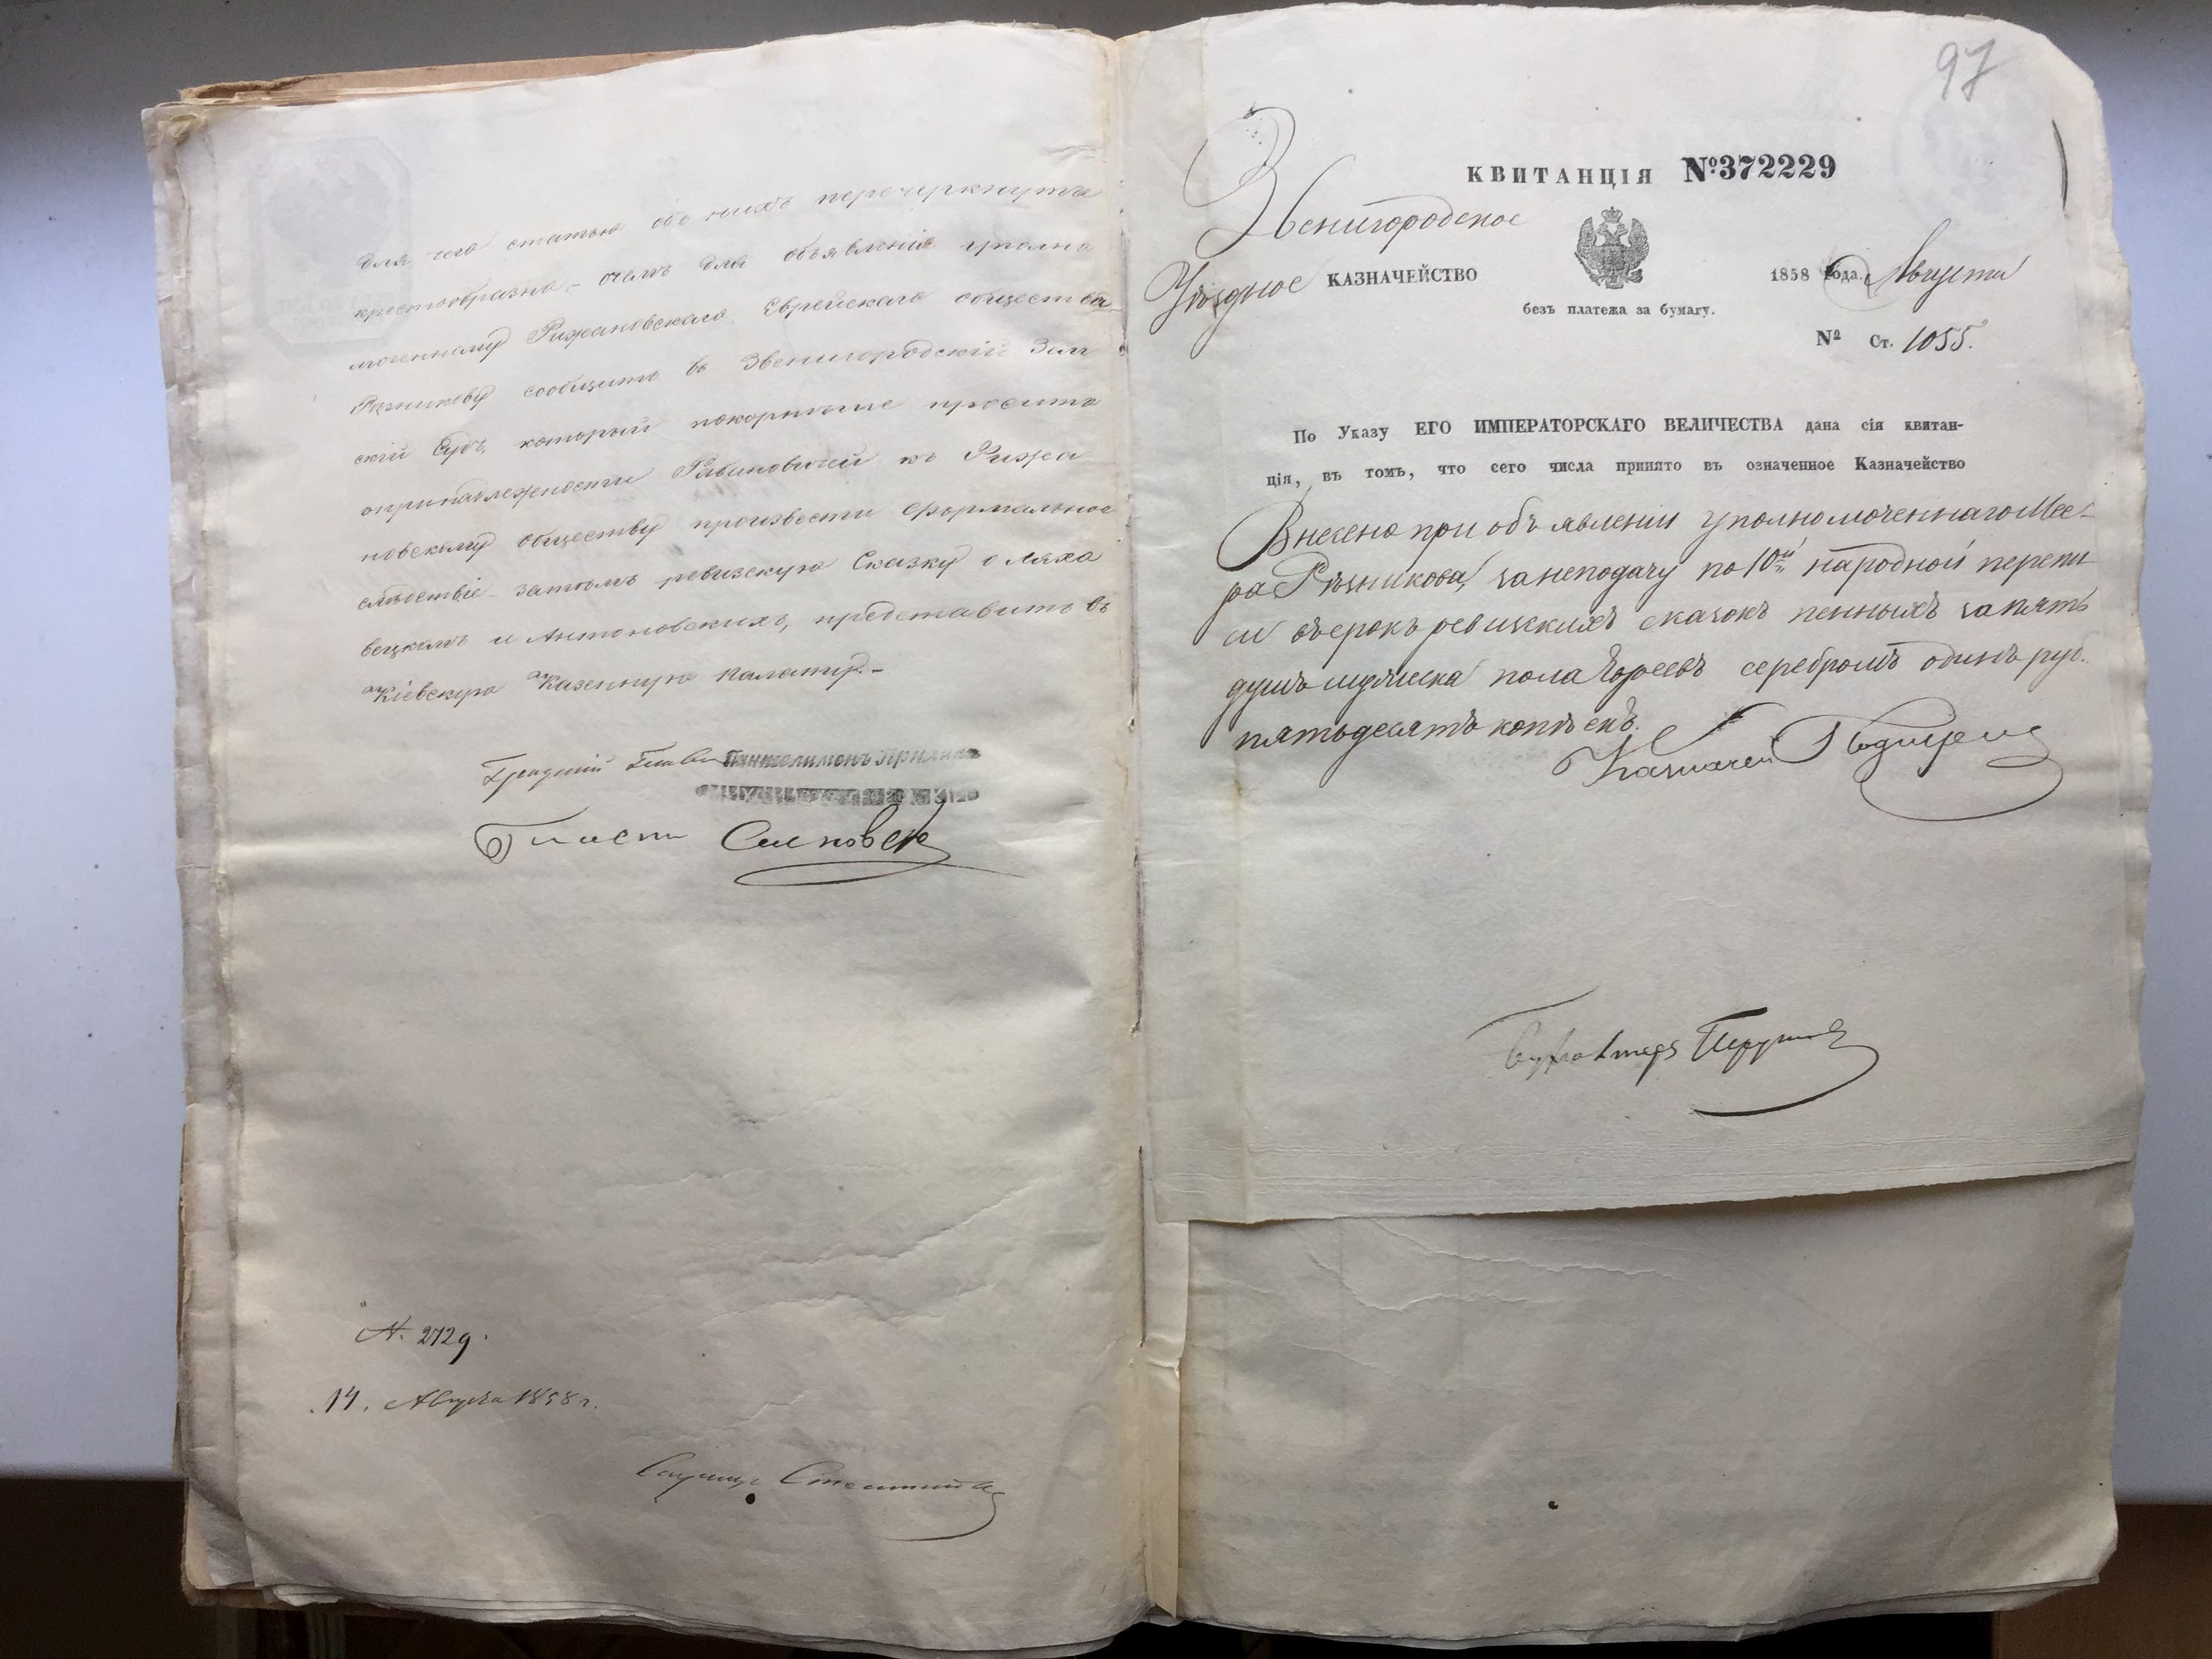 для чего статью обо нихъ перечеркнута
крестообразно, - о чемъ для объявленія уполно
моченному Рижановскаго Еврейскаго общества
Резникову сообщить въ Звенигородскій Зем
скій Судъ, который покорнейше проситъ
о принадлежности Рабиновичей къ Рижа
новскому обществу произвести формальное
слѣдствіе - затѣмъ ревизскую Сказку о Ляхо
вецкомъ и Антоновскихъ, представить въ
Кіевскую Казенную Палату. -
Градскій Глава Пантелимонъ
Гласн
N. 2729.
14. Августа 1858 г.
97
КВИТАНЦІЯ №372229
Звенигородское
Уѣздное КАЗНАЧЕЙСТВО
1858 Года. Августа
безъ платежа за бумагу.
№ Ст. 1055.
По Указу ЕГО ИМПЕРАТОРСКАГО ВЕЛИЧЕСТВА дана сія квитан-
ція, въ томъ, что сего числа принято въ означенное Казначейство
Внесено при объявленіи уполномоченнаго Мее-
ра Рѣзникова, за неподачу по 10й народной перепи
си въ срокъ ревизкихъ сказокъ пенныхъ за пять
душъ мужеска пола Евреевъ серебромъ одинъ руб.
пятьдесятъ копѣекъ.
Казначей
Бухгалтеръ